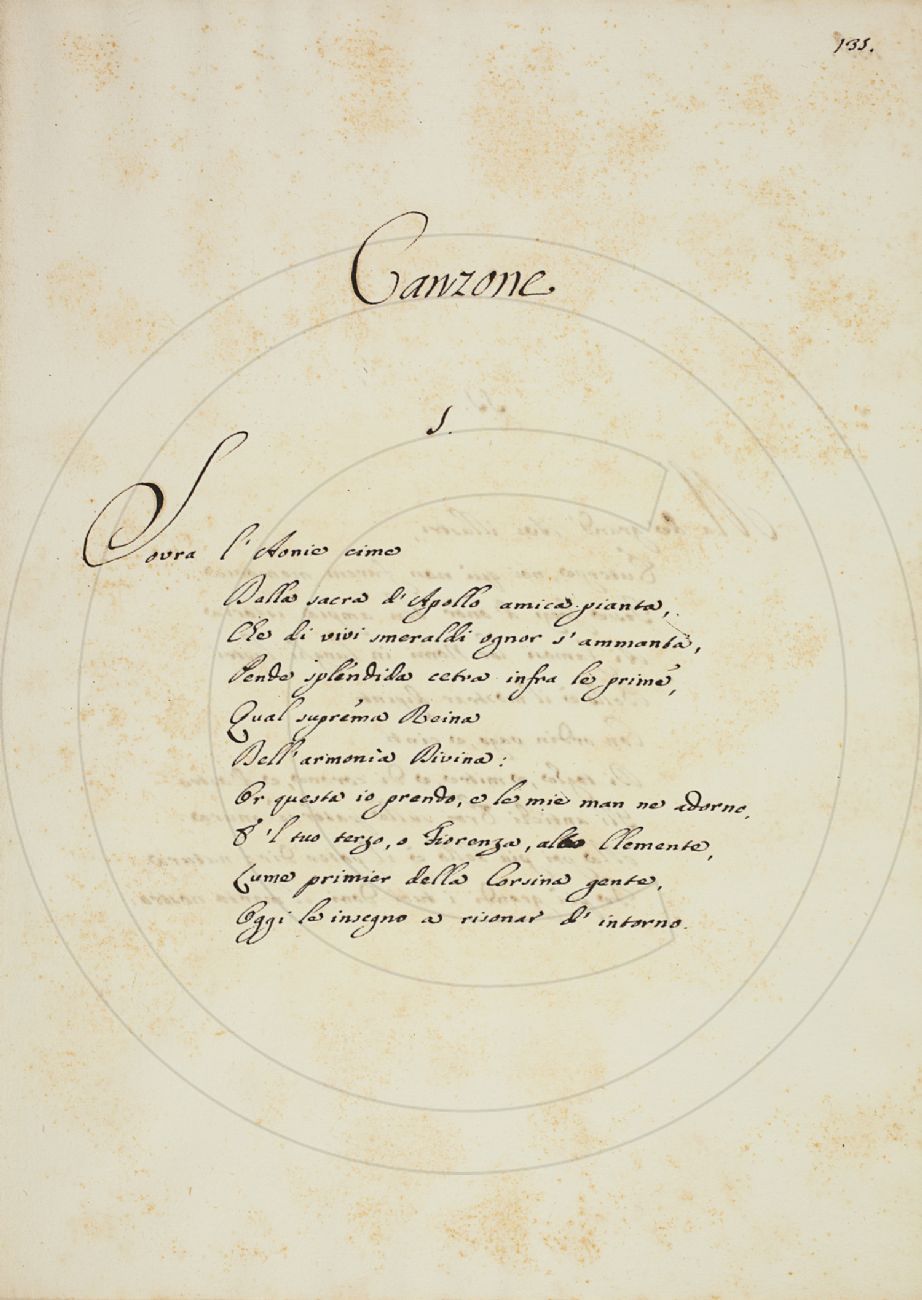 135.
Canzone
I.
Sovra l'Aonie cime
Dalla sacra d'Apollo amica pianta,
Che di vivi smeraldi ognor s'ammanta,
Pende spléndida cetra infra le prime,
Qual supréma Reina
Dell'armonìa Divina:
Or questa io prendo, e le mie man ne adorno,
E 'l tuo terzo, o Fiorenza, alto Clemente,
Lume primier della Corsina gente,
Oggi le insegno a risonar d'intorno.